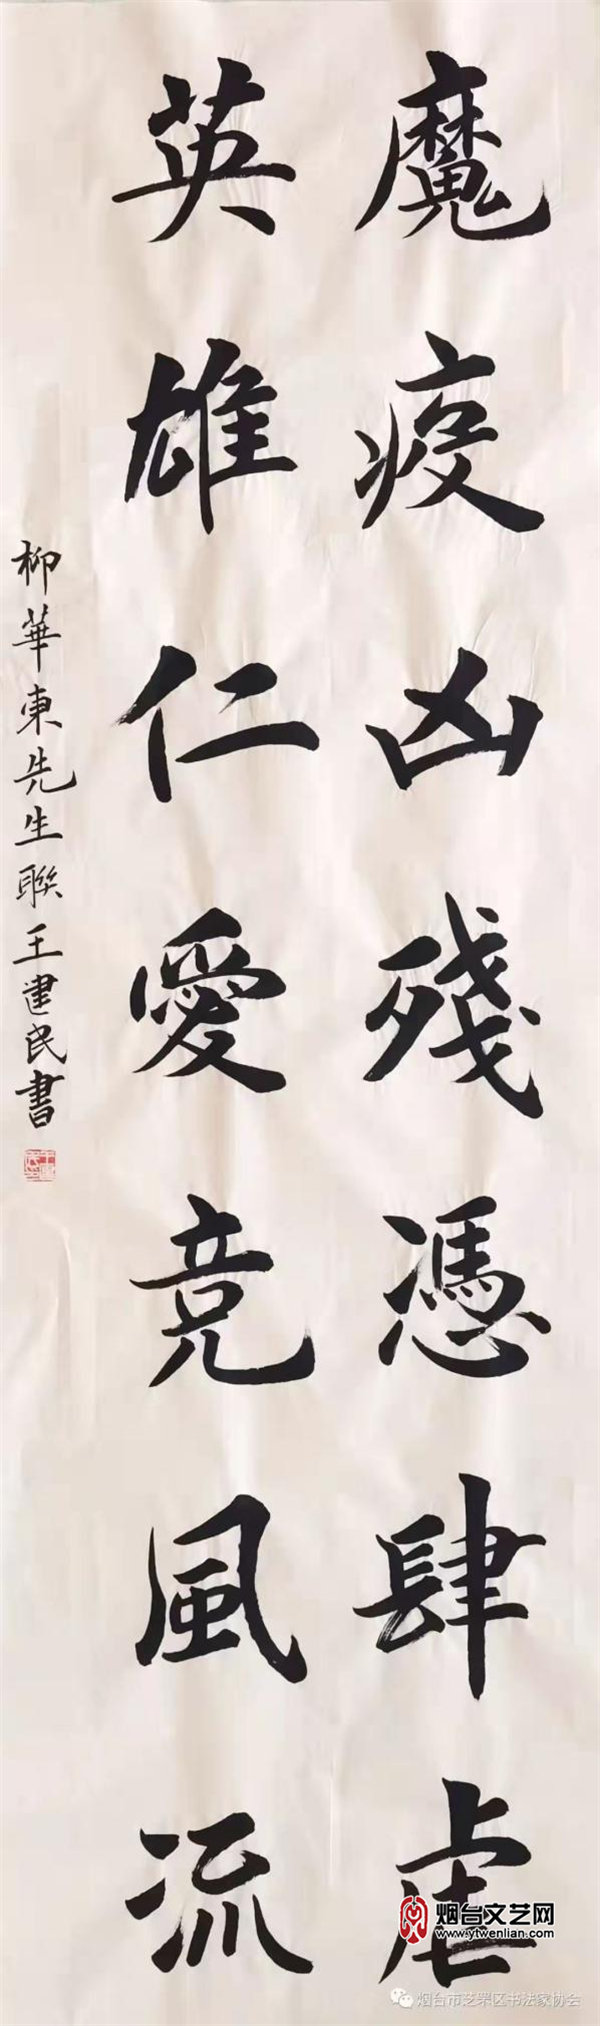 魔疫凶殘憑肆虐
英雄仁愛竞風流
柳華東先生聯王建民書
烟台文艺网
www.ytwenlian.com
烟台市芝罘区书法家协会